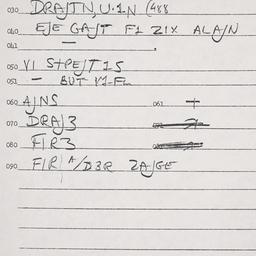 030 DRAJTN, U.1N (488
040 EJE GAJT F1 ZIX ALAJN
041 — .
050 VI S+PEJT IS
051 — BUT V1-FL
060 AJNS 061 +
070 DRAJ3
080 FIR3
090 FIR A/D3R ZAJGE